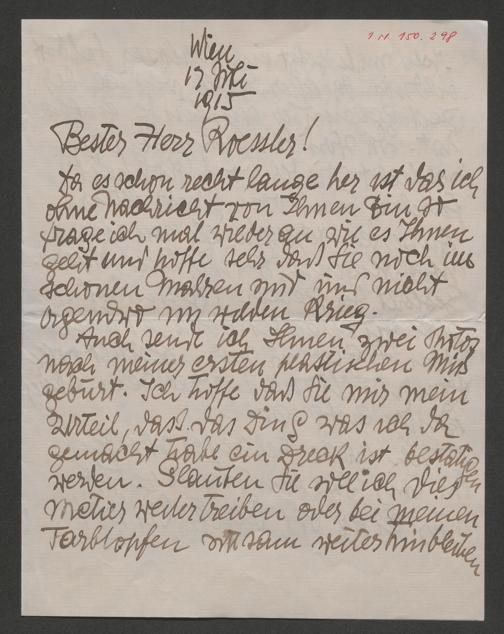 I.N. 150.298
Wien
17 Juli
1915
Bester Herr Roessler!
Da es schon recht lange her ist das ich
ohne Nachricht von Ihnen bin so
frage ich mal wieder an wie es Ihnen
geht und hoffe sehr daß Sie noch im
schönen Mähren sind und nicht
irgendwo im wilden Krieg.
Auch sende ich Ihnen zwei Photos
nach meiner ersten plastischen Miß
geburt. Ich hoffe daß Sie mir mein
Urteil, dass das Ding was ich da
gemacht habe ein Dreck ist bestätigen
werden. Glauben Sie soll ich dies
Metier weiter treiben oder bei meinen
Farbtopfen weiterhinbleiben